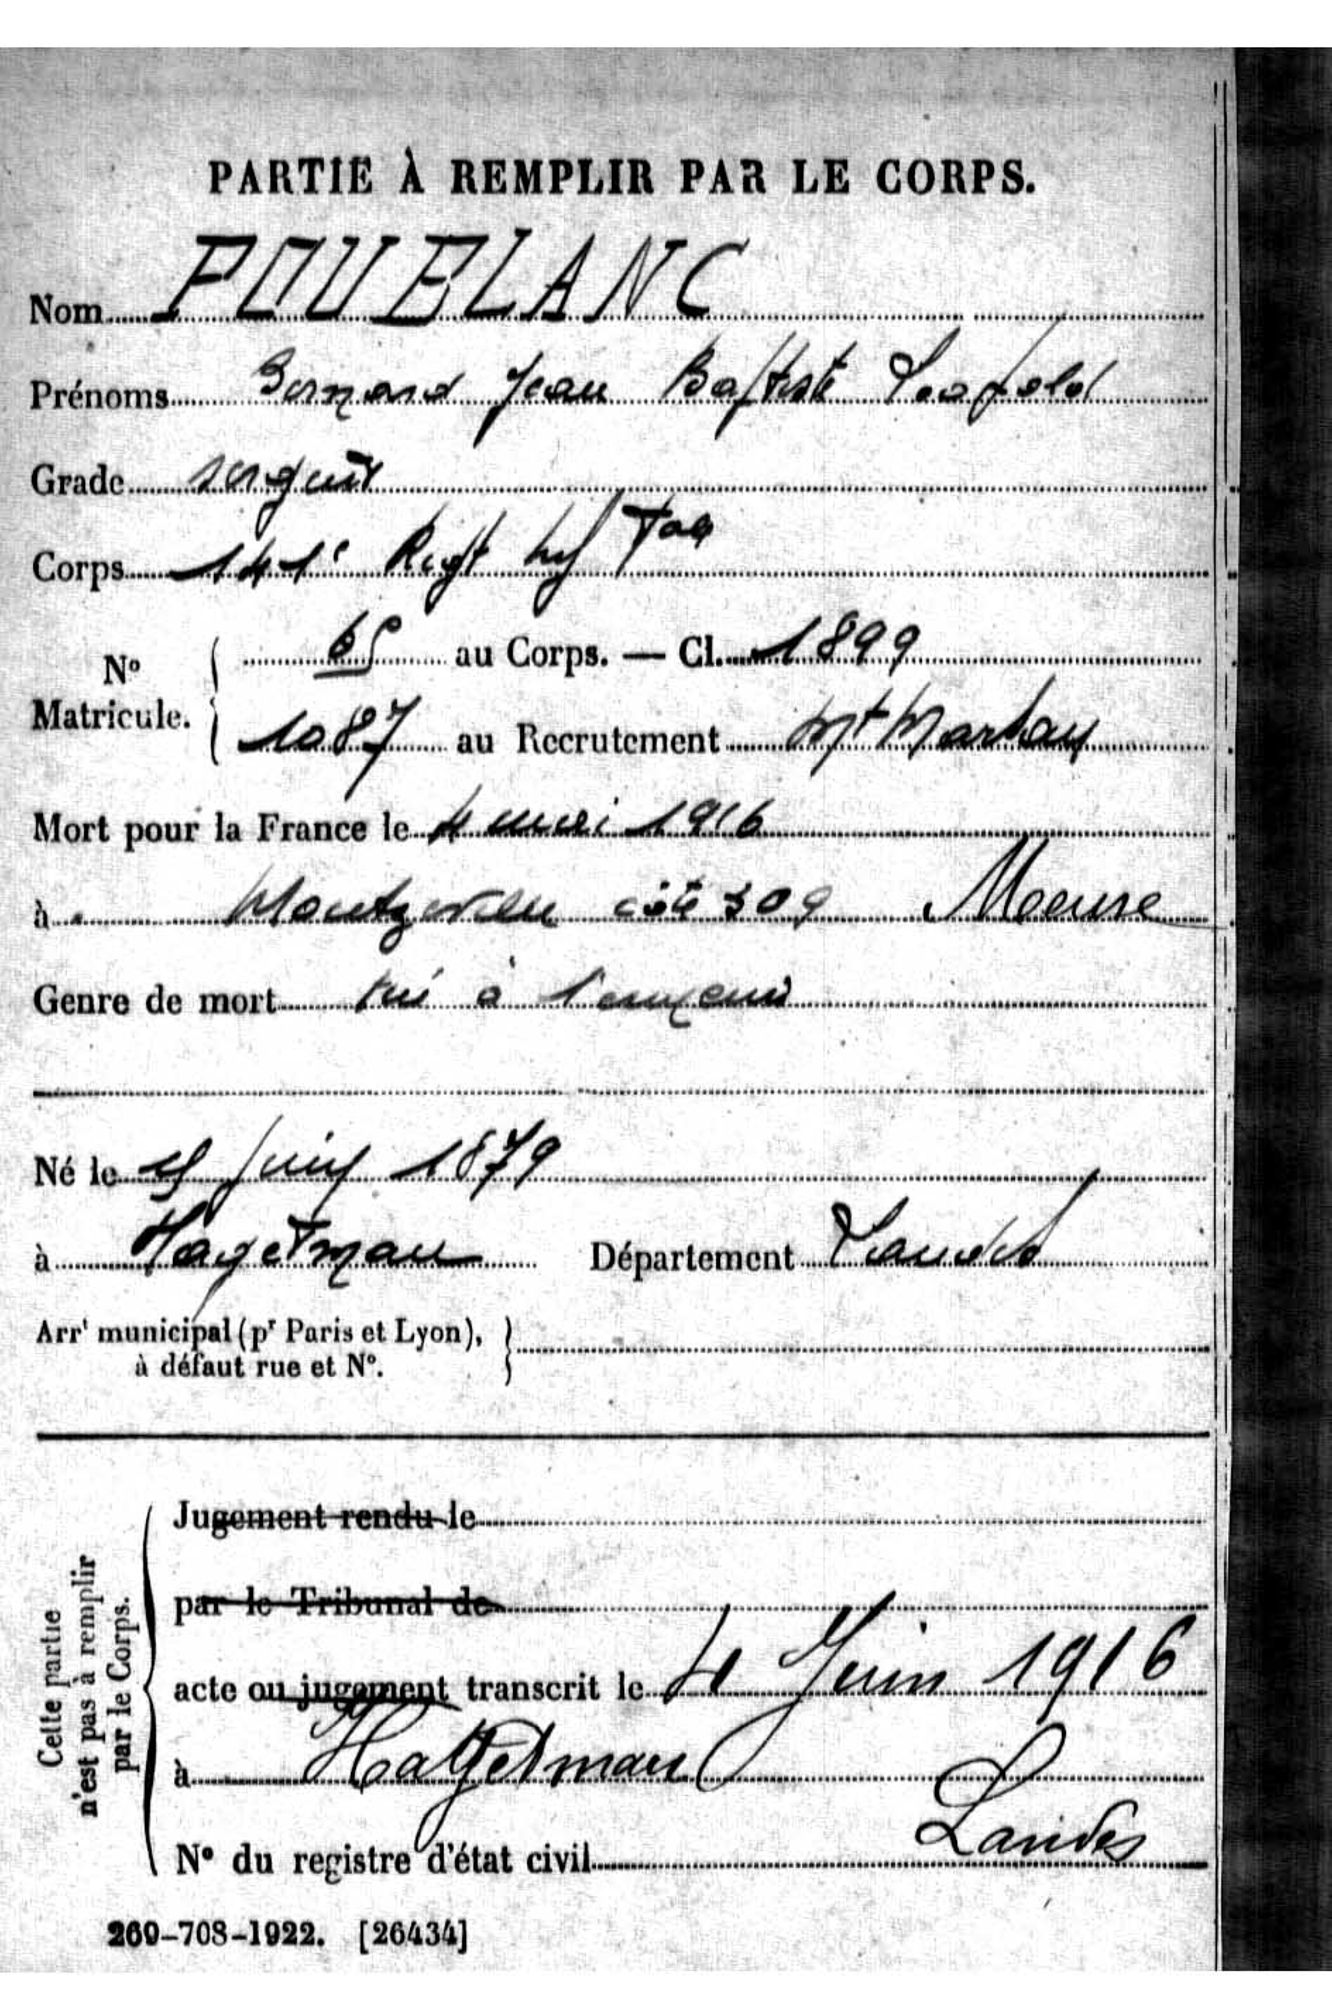 PARTIE À REMPLIR PAR LE CORPS.
Nom POUBLANC
Prénoms Bernard Jean Baptiste Leopold
Grade sergent
Corps 141e Regt Inf Tale
No Matricule. 65 au Corps. — Cl. 1899
1087 au Recrutement Mt Marsan
Mort pour la France le 4 mai 1916
à Montzeville côté 309 Meuse
Genre de mort tué à l'ennemi
Né le juin 1879
à Hagetmau Département Landes
Arrt municipal (pr Paris et Lyon),
à défaut rue et No.
Cette partie
n'est pas à remplir
par le Corps.
Jugement rendu le
par le Tribunal de
acte ou jugement transcrit le 4 Juin 1916
à Hagetmau
Landes
No du registre d'état civil
269-708-1922. [26434]